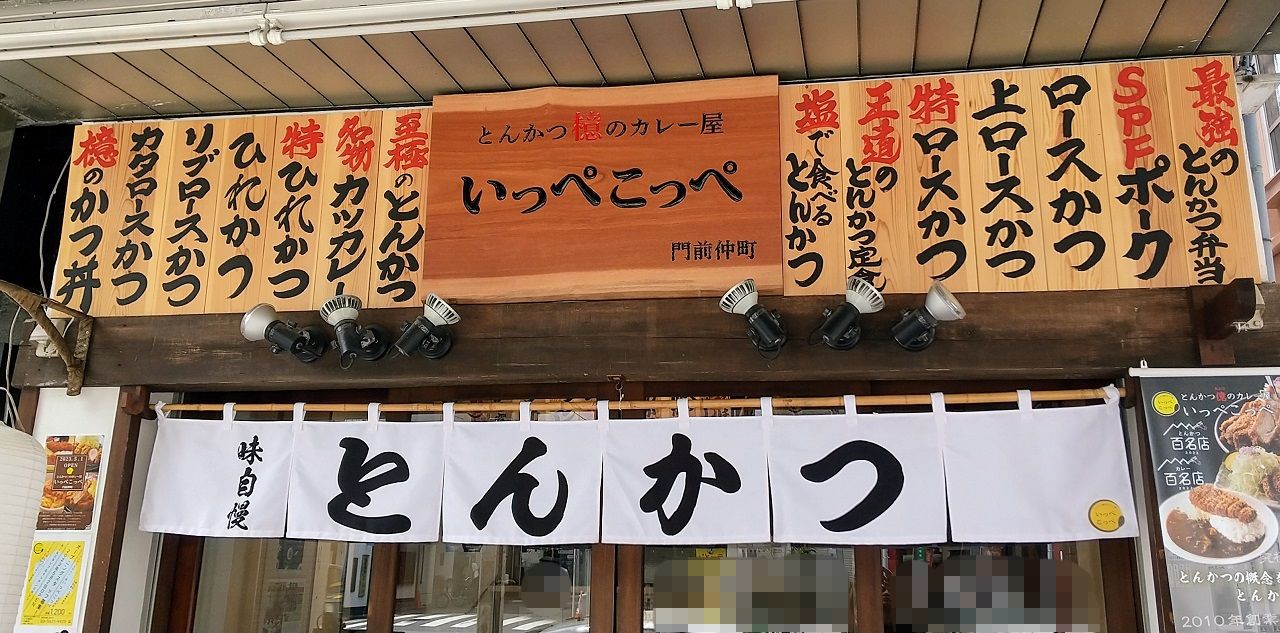 最強のとんかつ弁当
SPFポーク
ロースかつ
上ロースかつ
特ロースかつ
王道のとんかつ定食
塩で食べるとんかつ
とんかつ檍のカレー屋
いっぺこっぺ
門前仲町
至極のとんかつ
名物カツカレー
特ひれかつ
ひれかつ
リブロースかつ
カタロースかつ
檍のかつ丼
味自慢
とんかつ
いっぺ
こっぺ
とんかつ檍のカレー屋
いっぺこっぺ
とんかつ
百名店
カレー
百名店
とんかつの概念を
とんか
2010年創業
2023.5.1
OPEN
いっぺこっぺ
1,200